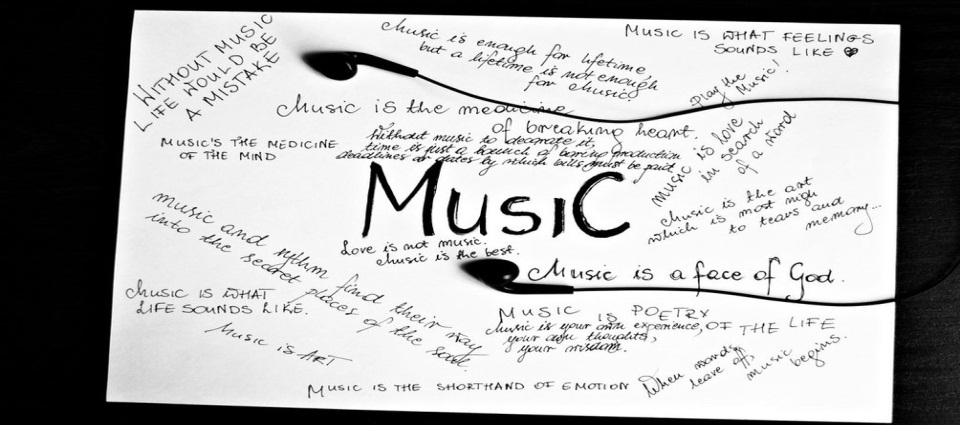 WITHOUT MUSIC
LIFE WOULD BE
A MISTAKE
Music is enough for lifetime
but a lifetime is not enough
for Music
MUSIC IS WHAT FEELINGS
SOUNDS LIKE
Play the
Music!
Music is the medicine
of breaking heart.
MUSIC'S THE MEDICINE
OF THE MIND
Without music to decorate it,
time is just a bounch of boring production
deadlines or dates by which bills must be paid
music is love
in search
of a word
MUSIC
Music is the art
which is most nigh
to tears and
memory...
music and rythm find their way
into the secret places of the soul.
Love is not music.
Music is the best.
Music is a face of God.
MUSIC IS WHAT
LIFE SOUNDS LIKE.
MUSIC IS POETRY
OF THE LIFE
Music is your own experience,
your own thoughts,
your wisdom.
MUSIC IS ART
When words
leave off,
music
begins.
MUSIC IS THE SHORTHAND OF EMOTION